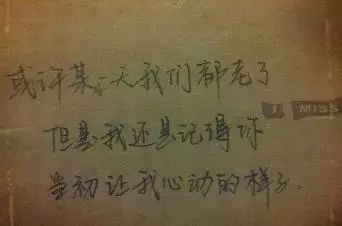 或许某一天我们都老了
I MISS
但是我还是记得你
当初让我心动的样子.